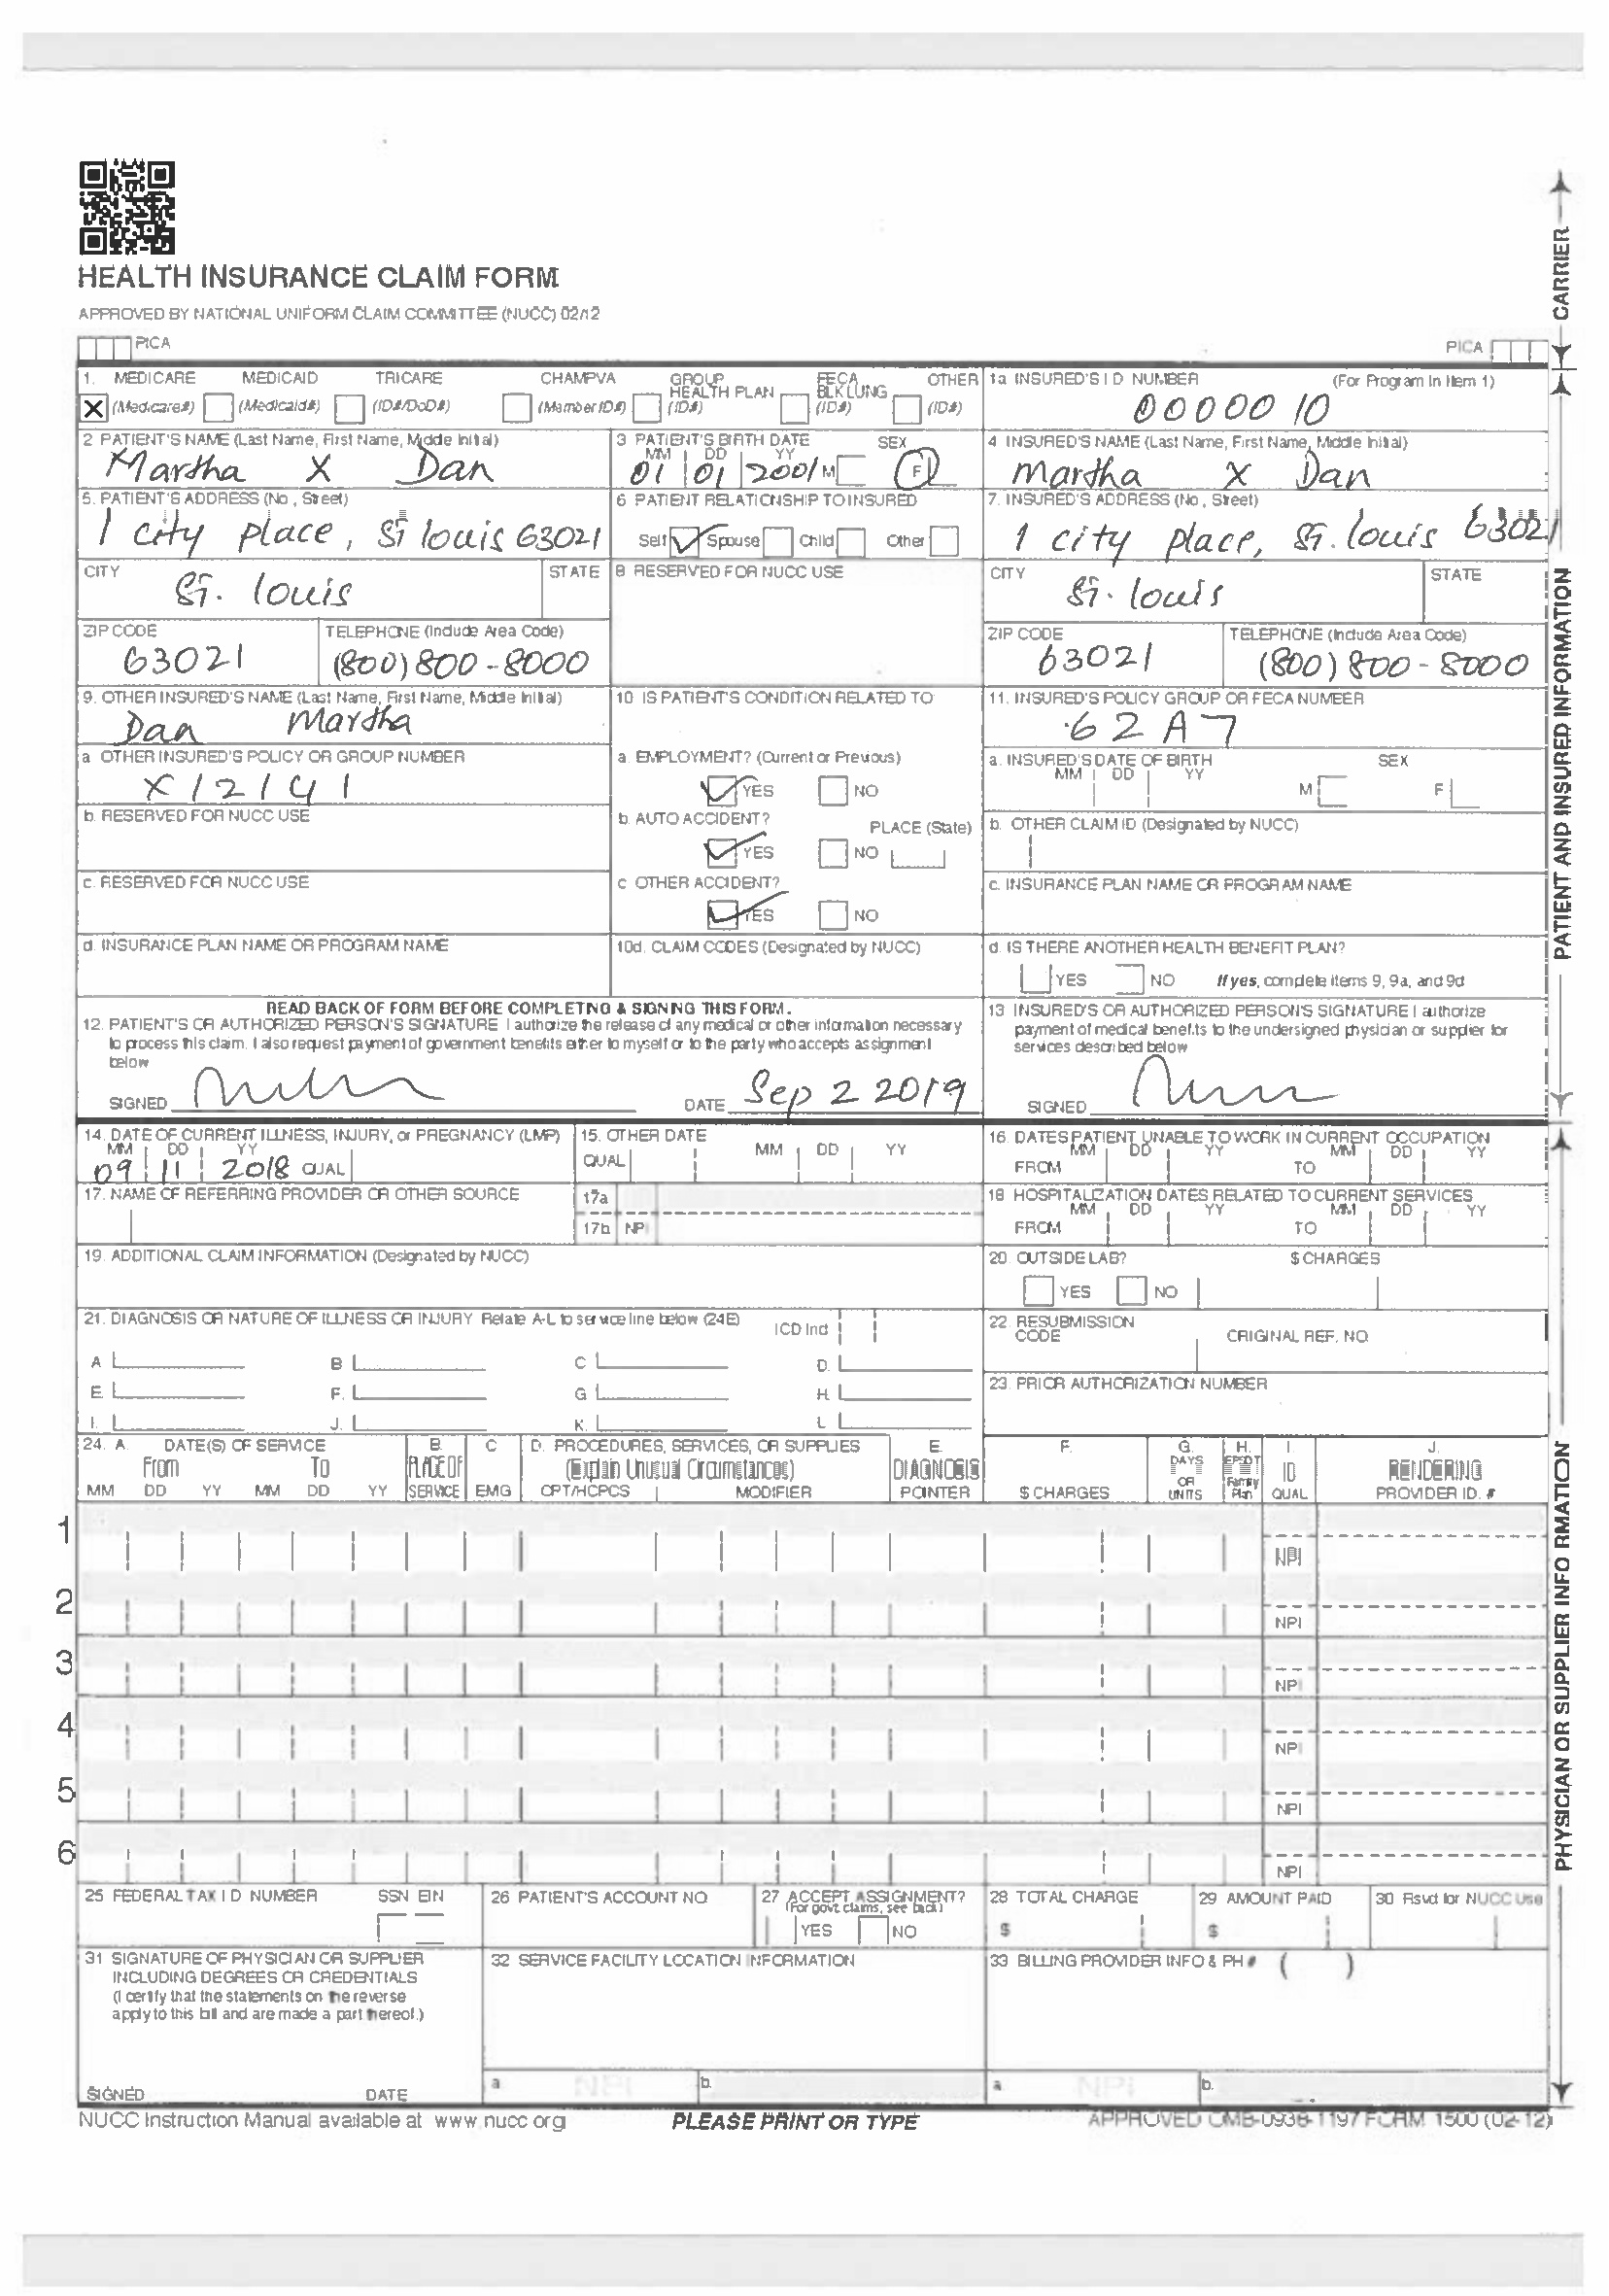 HEALTH INSURANCE CLAIM FORM
APPROVED BY NATIONAL UNIFORM CLAIM COMMITTEE (NUCC) 02/12
PICA
PICA
CARRIER
1. MEDICARE MEDICAID TRICARE CHAMPVA GROUP HEALTH PLAN FECA BLK LUNG OTHER
X (Medicare#) (Medicaid#) (ID#/DoD#) (Member ID#) (ID#) (ID#) (ID#)
1a INSURED'S I D NUMBER (For Program in Item 1)
0000010
2 PATIENT'S NAME (Last Name, First Name, Middle Initial)
Martha X Dan
3 PATIENT'S BIRTH DATE SEX
MM DD YY
01 01 2001 M F
4 INSURED'S NAME (Last Name, First Name, Middle Initial)
Martha X Dan
5. PATIENT'S ADDRESS (No , Street)
1 city place, St louis 63021
6 PATIENT RELATIONSHIP TO INSURED
Self Spouse Child Other
7. INSURED'S ADDRESS (No , Street)
1 city place, St. louis 63021
CITY STATE
St. louis
8 RESERVED FOR NUCC USE
CITY STATE
St. louis
ZIP CODE TELEPHONE (Include Area Code)
63021 (800) 800-8000
ZIP CODE TELEPHONE (Include Area Code)
63021 (800) 800-8000
9. OTHER INSURED'S NAME (Last Name, First Name, Middle Initial)
Dan Martha
10 IS PATIENT'S CONDITION RELATED TO
11. INSURED'S POLICY GROUP OR FECA NUMBER
62A7
a OTHER INSURED'S POLICY OR GROUP NUMBER
X12141
a. EMPLOYMENT? (Current or Previous)
YES NO
a. INSURED'S DATE OF BIRTH SEX
MM DD YY
M F
b. RESERVED FOR NUCC USE
b AUTO ACCIDENT? PLACE (State)
YES NO
b. OTHER CLAIM ID (Designated by NUCC)
c. RESERVED FOR NUCC USE
c OTHER ACCIDENT?
YES NO
c. INSURANCE PLAN NAME OR PROGRAM NAME
d. INSURANCE PLAN NAME OR PROGRAM NAME
10d. CLAIM CODES (Designated by NUCC)
d. IS THERE ANOTHER HEALTH BENEFIT PLAN?
YES NO If yes, complete items 9, 9a, and 9d
PATIENT AND INSURED INFORMATION
READ BACK OF FORM BEFORE COMPLETING & SIGNING THIS FORM.
12. PATIENT'S OR AUTHORIZED PERSON'S SIGNATURE I authorize the release of any medical or other information necessary
to process this claim. I also request payment of government benefits either to myself or to the party who accepts assignment
below
SIGNED DATE Sep 2 2019
13 INSURED'S OR AUTHORIZED PERSON'S SIGNATURE I authorize
payment of medical benefits to the undersigned physician or supplier for
services described below
SIGNED
14. DATE OF CURRENT ILLNESS, INJURY, or PREGNANCY (LMP)
MM DD YY
09 11 2018 QUAL
15. OTHER DATE
QUAL MM DD YY
16. DATES PATIENT UNABLE TO WORK IN CURRENT OCCUPATION
MM DD YY MM DD YY
FROM TO
17. NAME OF REFERRING PROVIDER OR OTHER SOURCE
17a
17b NPI
18 HOSPITALIZATION DATES RELATED TO CURRENT SERVICES
MM DD YY MM DD YY
FROM TO
19. ADDITIONAL CLAIM INFORMATION (Designated by NUCC)
20. OUTSIDE LAB? $ CHARGES
YES NO
21. DIAGNOSIS OR NATURE OF ILLNESS OR INJURY Relate A-L to service line below (24E) ICD Ind
A B C D.
E. F. G H.
I. J. K. L
22. RESUBMISSION
CODE ORIGINAL REF. NO.
23. PRIOR AUTHORIZATION NUMBER
24. A. DATE(S) OF SERVICE B. C D. PROCEDURES, SERVICES, OR SUPPLIES E. F. G. H. I. J.
From To PLACE OF (Explain Unusual Circumstances) DIAGNOSIS DAYS EPSDT ID RENDERING
MM DD YY MM DD YY SERVICE EMG CPT/HCPCS MODIFIER POINTER $ CHARGES OR UNITS Family Plan QUAL PROVIDER ID. #
1 NPI
2 NPI
3 NPI
4 NPI
5 NPI
6 NPI
25 FEDERAL TAX I D NUMBER SSN EIN
26 PATIENT'S ACCOUNT NO
27 ACCEPT ASSIGNMENT?
(For govt. claims, see back)
YES NO
28 TOTAL CHARGE
$
29 AMOUNT PAID
$
30 Rsvd for NUCC Use
31 SIGNATURE OF PHYSICIAN OR SUPPLIER
INCLUDING DEGREES OR CREDENTIALS
(I certify that the statements on the reverse
apply to this bill and are made a part thereof.)
SIGNED DATE
32 SERVICE FACILITY LOCATION INFORMATION
a NPI b.
33 BILLING PROVIDER INFO & PH # ( )
a NPI b.
PHYSICIAN OR SUPPLIER INFORMATION
NUCC Instruction Manual available at www.nucc org
PLEASE PRINT OR TYPE
APPROVED OMB-0938-1197 FORM 1500 (02-12)